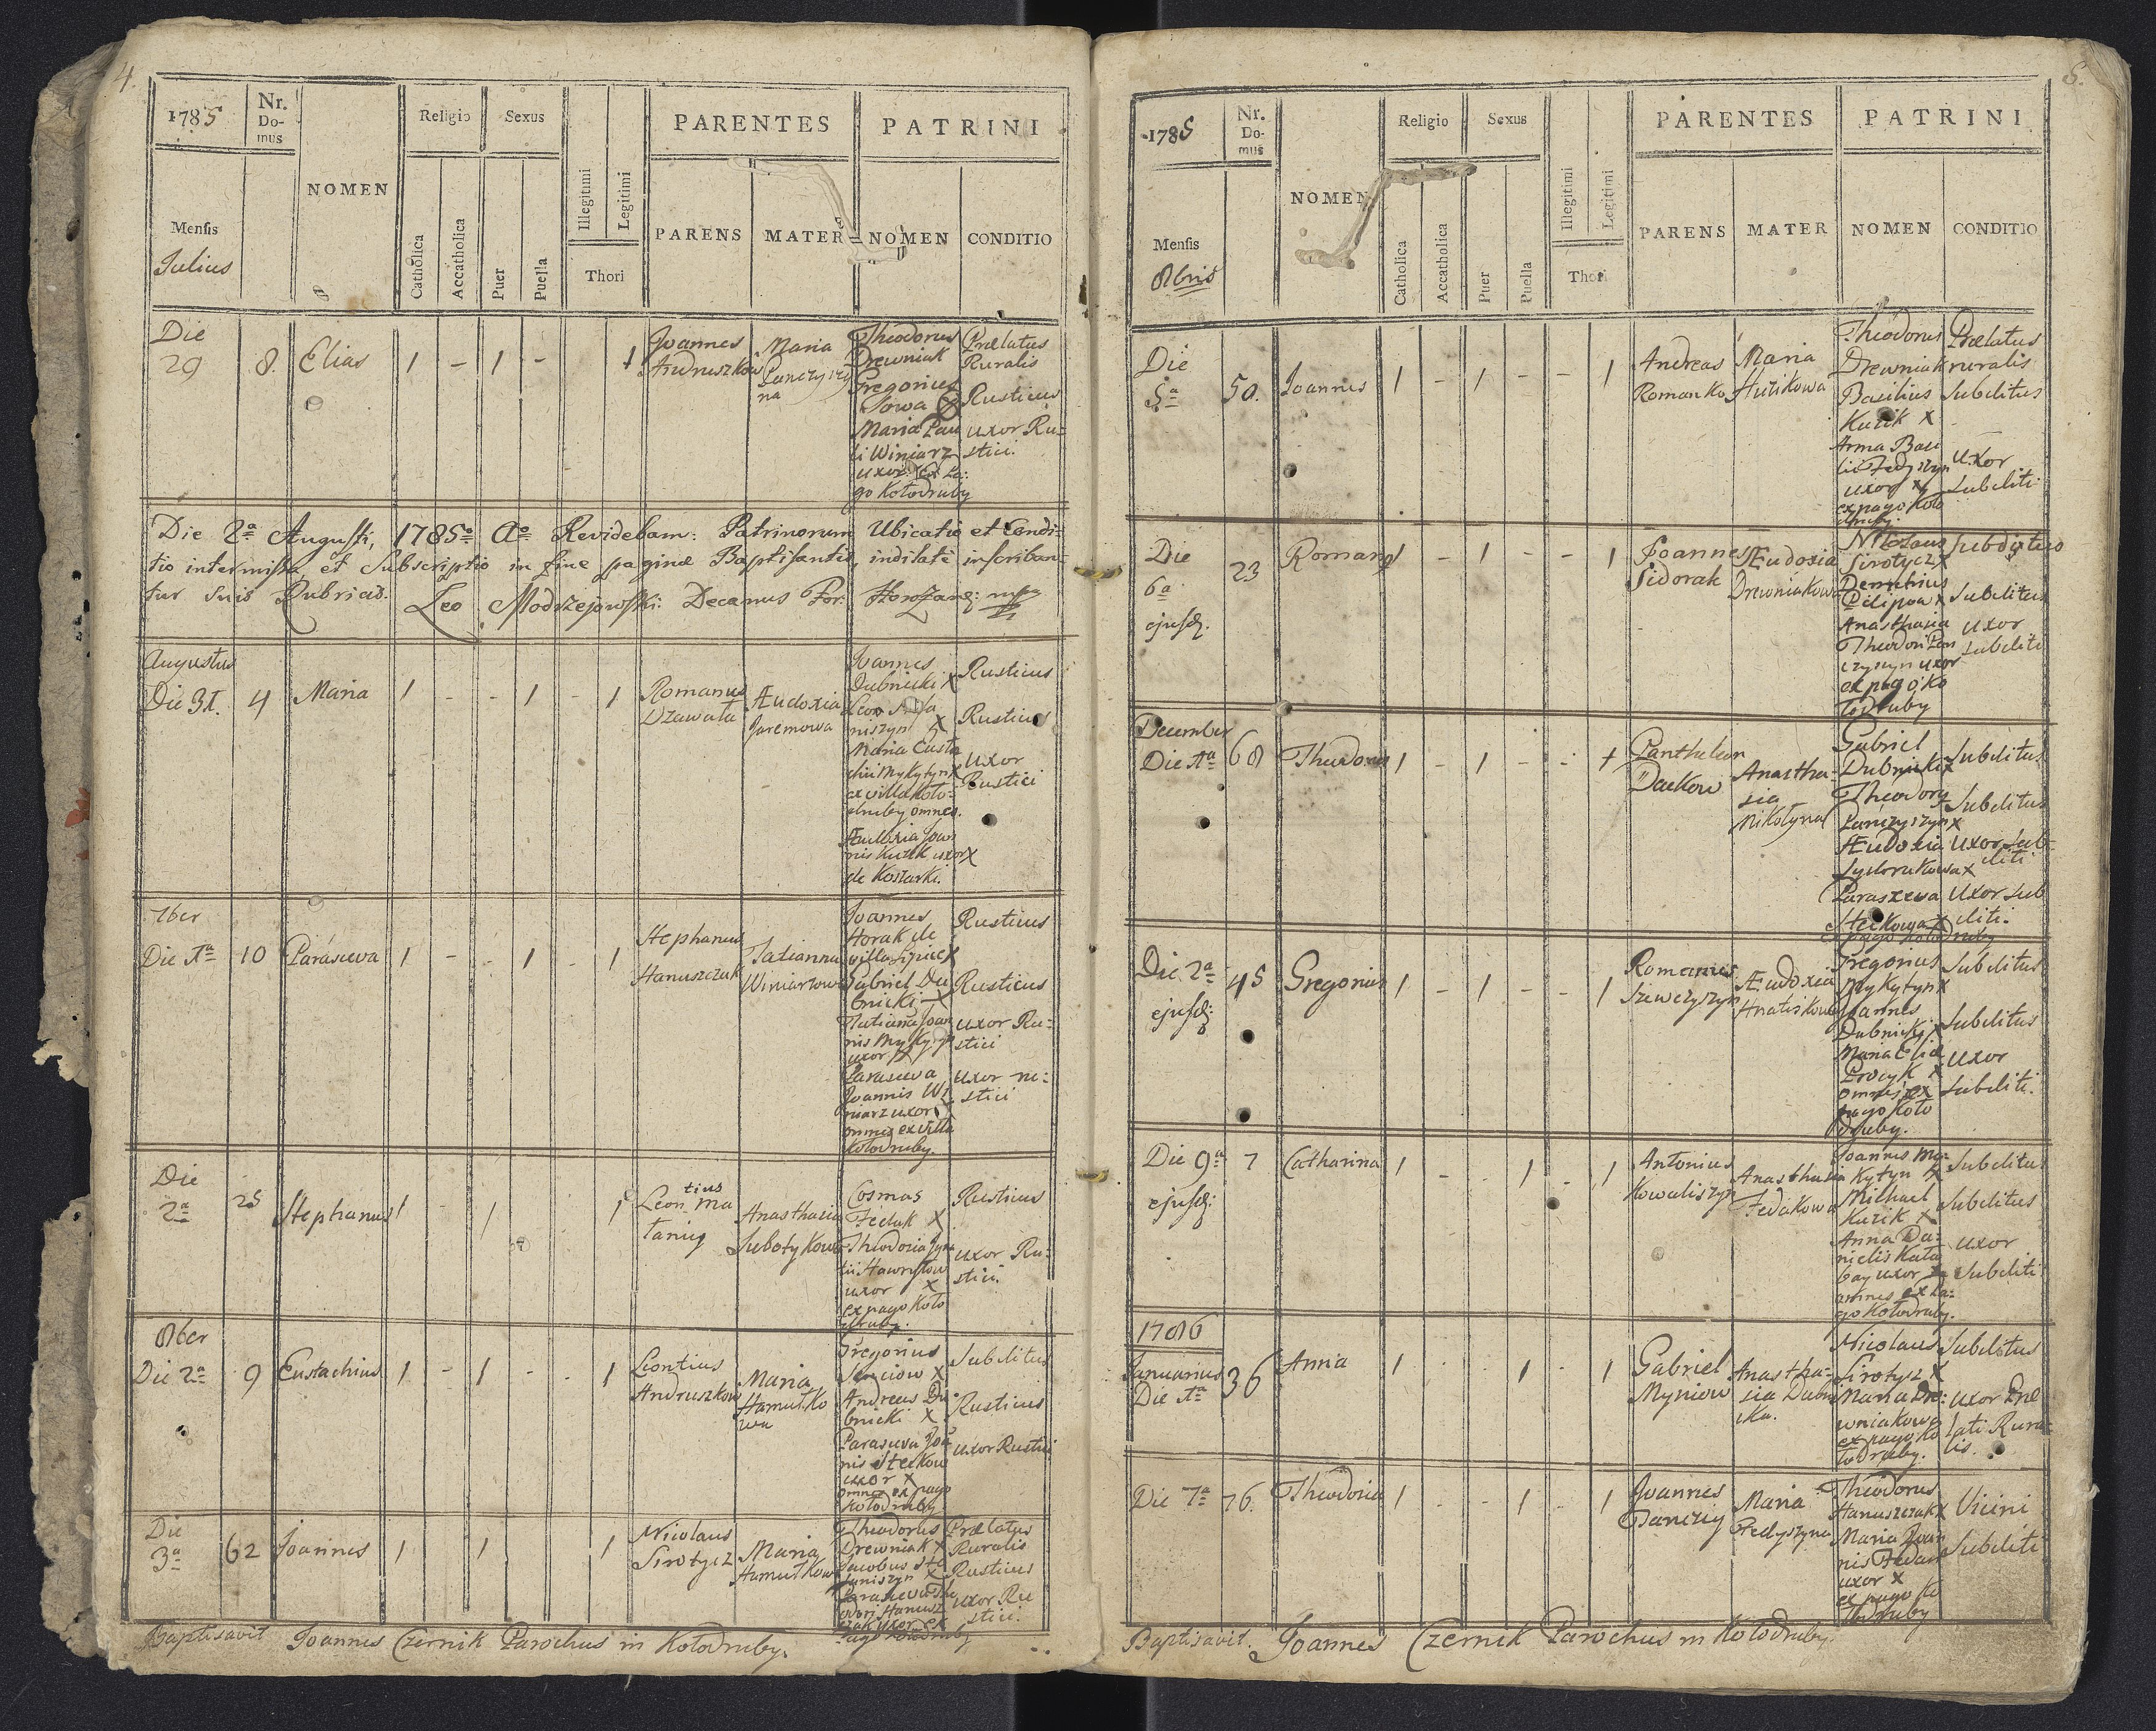 4.
1785
Nr.
Do-
mus
NOMEN
Religio
Sexus
Illegitimi
Legitimi
PARENTES
PATRINI
Mensis
Julius
Catholica
Accatholica
Puer
Puella
Thori
PARENS
MATER
NOMEN
CONDITIO
Die
29
8.
Elias
1 - 1 - 1
Joannes
Andruszkow
Maria
Panczyszy
na
Theodorus
Drewniak
Gregorius
Sowa
Maria Pau
li Winiarz
uxor Ex Pa:
go Kołodruby
Prælatus
Ruralis
Rusticus
uxor Ru=
stici.
Die 2a Augusti, 1785o Ao Revidebam: Patrinorum Ubicatio et Condi-
tio intermissa, et Subscriptio in fine paginæ Baptisantis, indilatè inscriban-
tur suis Rubricis.
Leo Modrzejowski: Decanus For:
Augustus
Die 31.
4
Maria
1 - - 1 - 1
Romanus
Dzewala
Æudoxia
Jaremowa
Joannes
Dubnicki X
Leo
niszyn X
Maria Eusta
chii Mykytyn X
ex villa Koło=
druby omnes.
Æudoxia Joan
nis Kuzik uxor X
de Kosłarki.
Rusticus
Rusticus
uxor
Rustici
7ber
Die 1a
10
Parasceva
1 - - 1 - 1
Stephanus
Hanuszczak
Tatianna
Winiarzowa
Joannes
Horak de
villa X
Gabriel Du
bnicki X
Tatianna Joan
nis Myky
uxor X
Parasceva
Joannis Wi
niarz uxor X
omnes ex villa
Kołodruby.
Rusticus
Rusticus
uxor Ru=
stici
uxor ru=
stici
Die
2a
25
Stephanus
1 - 1 1
Leontius Ma
taniig
Anasthasia
Subotykowa
Cosmas
Fedak X
Theodozia
Hawryłow
uxor X
ex pago Koło
druby.
Rusticus
uxor Ru=
stici.
8ber
Die 2a
9
Eustachius
1 - 1 - - 1
Leontius
Andruszkow
Maria
Hamułko
wa
Gregorius
Senciow X
Andreas Du
bnicki X
Parasceva Joa
nis Steckow
uxor X
omnes ex pago
Kołodruby.
Subditus
Rusticus
uxor Rustici
Die
3a
62
Joannes
1 1 1
Nicolaus
Sirotycz
Maria
Hamułkow
Theodorus
Drewniak X
Jacobus Ste
faniszyn X
Parasceva The
odori Hanusz
czak uxor ex
pago Kołodruby
Prælatus
Ruralis
Rusticus
uxor Ru
stici.
Baptisavit Joannes Czernik Parochus in Kołodruby.
5.
1785
Nr.
Do-
mus
NOMEN
Religio
Sexus
Illegitimi
Legitimi
PARENTES
PATRINI
Mensis
8bris
Catholica
Accatholica
Puer
Puella
Thori
PARENS
MATER
NOMEN
CONDITIO
Die
5a
50.
Joannes
1 - 1 - - 1
Andreas
Romanko
Maria
Hutikowa
Theodorus
Drewniak
Basilius
Kuzik X
Anna Basi
lii Fedyszyn
uxor X
ex pago Koło
druby.
Prælatus
ruralis
Subditus
Uxor
Subditi
Die
6a
ejusd.
23
Romanus
1 - 1 - - 1
Joannes
Sidorak
Æudoxia
Drewniakowa
Nicolaus
Sirotycz X
Demetrius
Pilipow X
Anasthasia
Theodori Pan
czyszyn uxor
ex pago Ko
łodruby
Subditus
Subditus
Uxor
Subditi
December
Die 1a
68
Theodorus
1 - 1 - - 1
Pantheleon
Dackow
Anastha=
sia
Mikołyna
Gabriel
Dubnicki X
Theodorus
Panczyszyn X
Æudoxia
Sydorakowa X
Paraszewa
Steckowa X
ex pago Kołodruby
Subditus
Subditus
Uxor Sub=
diti
Uxor Sub
diti.
Die 2a
ejusd:
45
Gregorius
1 - 1 - - 1
Romanus
Szewczyszyn
Æudoxia
Hnatiskowa
Gregorius
Mykytyn X
Joannes
Dubnicki X
Maria Eliæ
Procyk X
omnes ex
pago Koło
druby.
Subditus
Subditus
Uxor
Subditi.
Die 9a
ejusd:
7
Catharina
1 - 1 - 1
Antonius
Kowaliszyn
Anasthasia
Fedakowa
Joannes My=
kytyn X
Michael
Kuzik X
Anna Da=
nielis Kała
bay uxor X
omnes ex Pa=
go Kołodruby.
Subditus
Subditus
Uxor
Subditi
1786
Januarius
Die 1a
36
Anna
1 - 1 - 1
Gabriel
Myniow
Anastha=
sia Dubni
cka.
Nicolaus
Sirotycz X
Maria Dre=
wniakowa
ex pago Ko
łodruby.
Subditus
uxor Præ
lati Rura=
lis.
Die 7a
76.
Theodozia
1 - - 1 - 1
Joannes
Maria
Fedyszyna
Theodorus
Hanuszczak X
Maria Joan
nis Fedak
uxor X
ex pago Ko
łodruby
Vicini
Subditi
Baptisavit. Joannes Czernik Parochus in Kołodruby.